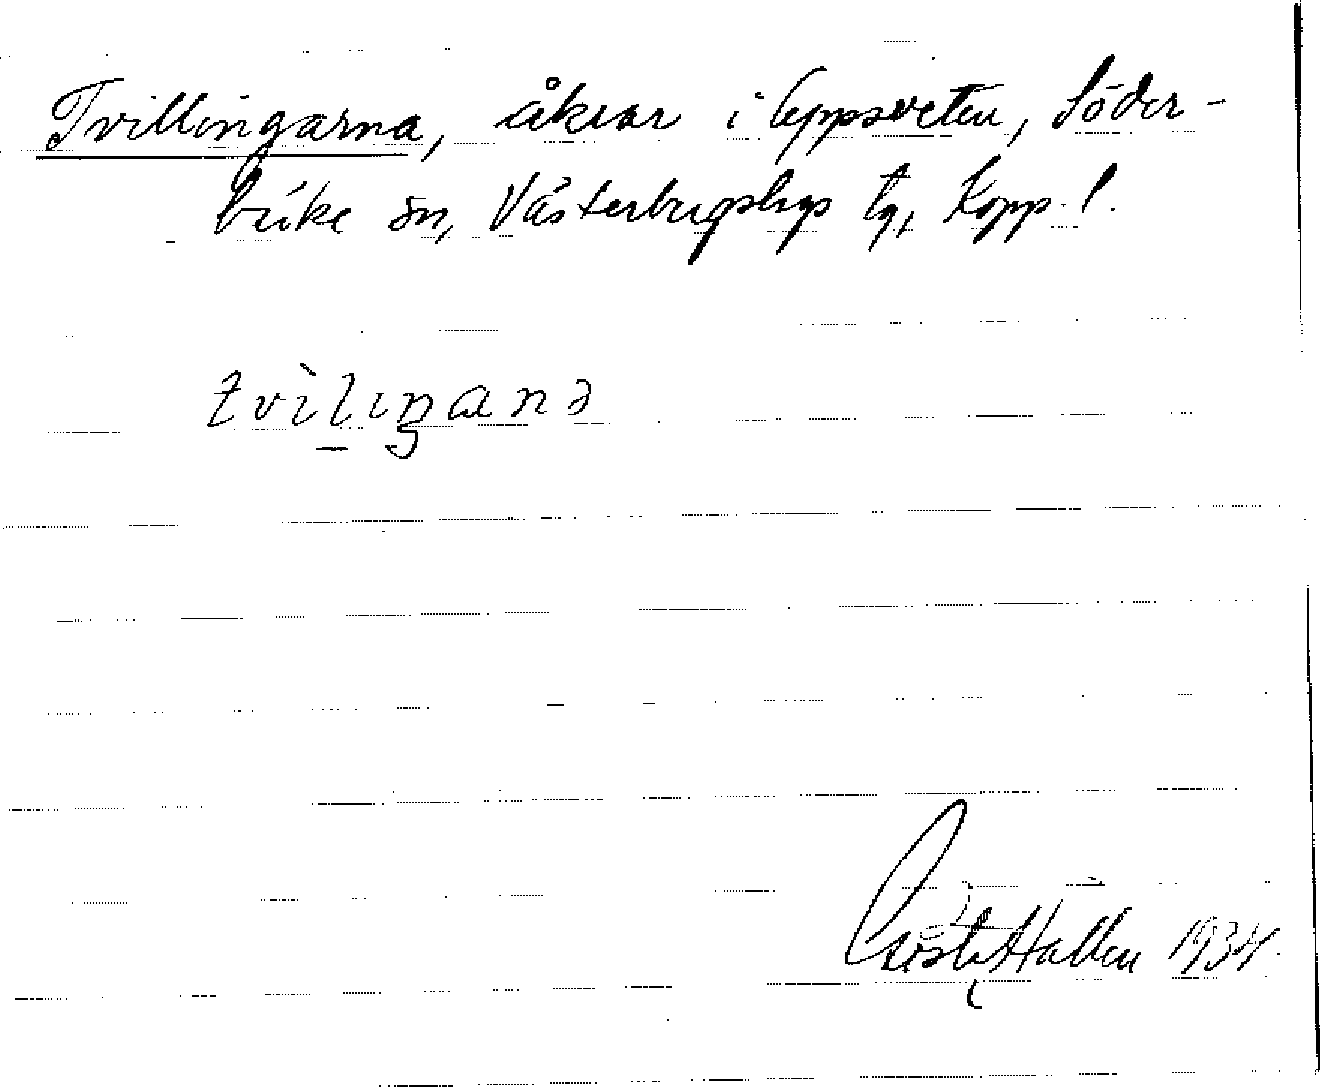 Tvillingarna, åkrar i Uppsveten, Söder-
bärke sn, Västerbergslags tg, Kopp. l.
tvìlıŋanə
Gösta Hallen 1934.